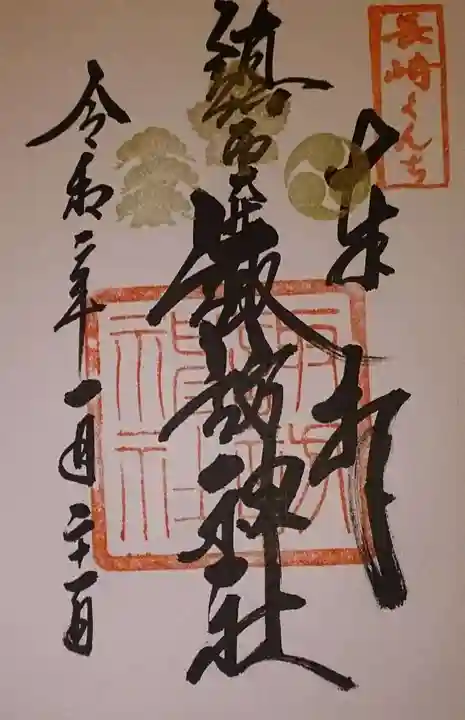 長崎くんち
奉拝
鎮西大社諏訪神社
諏訪神社
令和二年一月二十一日